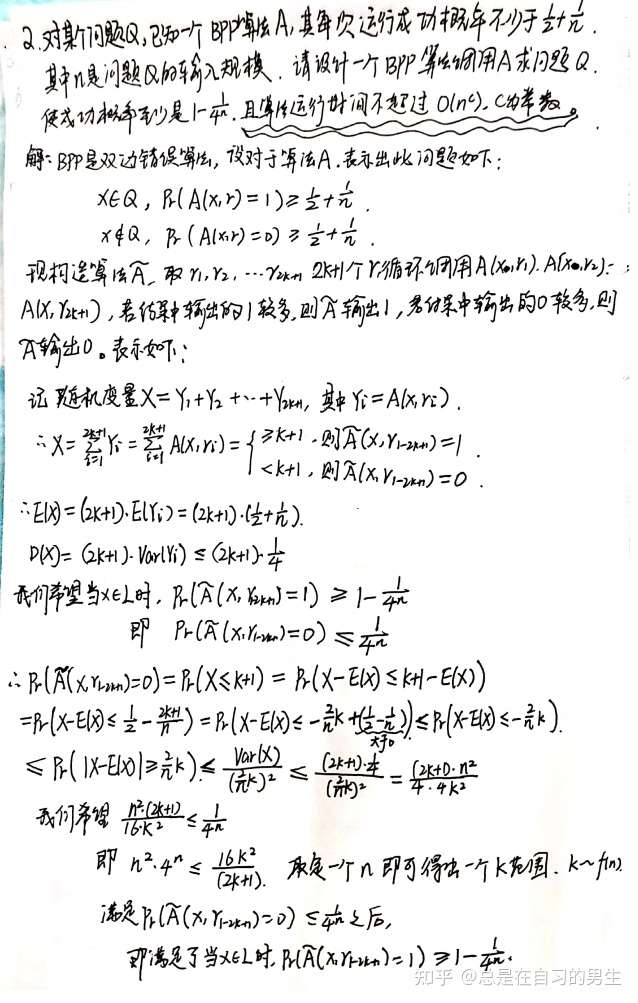 2. 对某个问题Q,已知一个BPP算法A,其每次运行成功概率不少于 1/2+1/n.
其中n是问题Q的输入规模. 请设计一个BPP算法调用A求问题Q.
使成功概率至少是 1-1/4ⁿ, 且算法运行时间不超过 O(nᶜ), C为常数。
解: BPP是双边错误算法, 设对于算法A. 表示出此问题如下:
X∈Q, Pr(A(x,r)=1) ≥ 1/2+1/n.
x∉Q, Pr(A(x,r)=0) ≥ 1/2+1/n.
现构造算法Ã, 取 r₁,r₂,…r₂ₖ₊₁ 2k+1个r, 循环调用A(x,r₁). A(x,r₂)…
A(X,r₂ₖ₊₁), 若结果中输出的1较多, 则Ã输出1, 若结果中输出的0较多, 则
Ã输出0。表示如下:
记 随机变量X=Y₁+Y₂+…+Y₂ₖ₊₁, 其中Yi=A(x,ri).
∴X=∑_{i=1}^{2k+1}Yi=∑_{i=1}^{2k+1}A(x,ri)={ ≥k+1, 则Ã(x,r₁₋₂ₖ₊₁)=1
<k+1, 则Ã(x,r₁₋₂ₖ₊₁)=0.
∴E(X)=(2k+1)·E(Yi)=(2k+1)·(1/2+1/n).
D(X)=(2k+1)·Var(Yi)≤(2k+1)·1/4
我们希望当x∈L时, Pr(Ã(x,r₁₋₂ₖ₊₁)=1) ≥ 1-1/4ⁿ
即 Pr(Ã(x,r₁₋₂ₖ₊₁)=0) ≤ 1/4ⁿ
∴Pr(Ã(x,r₁₋₂ₖ₊₁)=0)=Pr(X≤k+1)=Pr(X-E(X)≤k+1-E(X))
=Pr(X-E(X)≤1/2-(2k+1)/n)=Pr(X-E(X)≤-2/n k+(1/2-1/n))≤Pr(X-E(X)≤-2/n k).
大于0
≤Pr(|X-E(X)|≥2/n k)≤Var(X)/(2/n k)²≤(2k+1)·1/4/(2/n k)²=(2k+1)·n²/4·4k²
我们希望 n²·(2k+1)/16·k² ≤ 1/4ⁿ
即 n²·4ⁿ ≤ 16k²/(2k+1). 取定一个n即可得出一个k范围. k~f(n).
满足Pr(Ã(x,r₁₋₂ₖ₊₁)=0)≤1/4ⁿ之后,
即满足了当x∈L时, Pr(Ã(x,r₁₋₂ₖ₊₁)=1)≥1-1/4ⁿ.
知乎 @总是在自习的男生